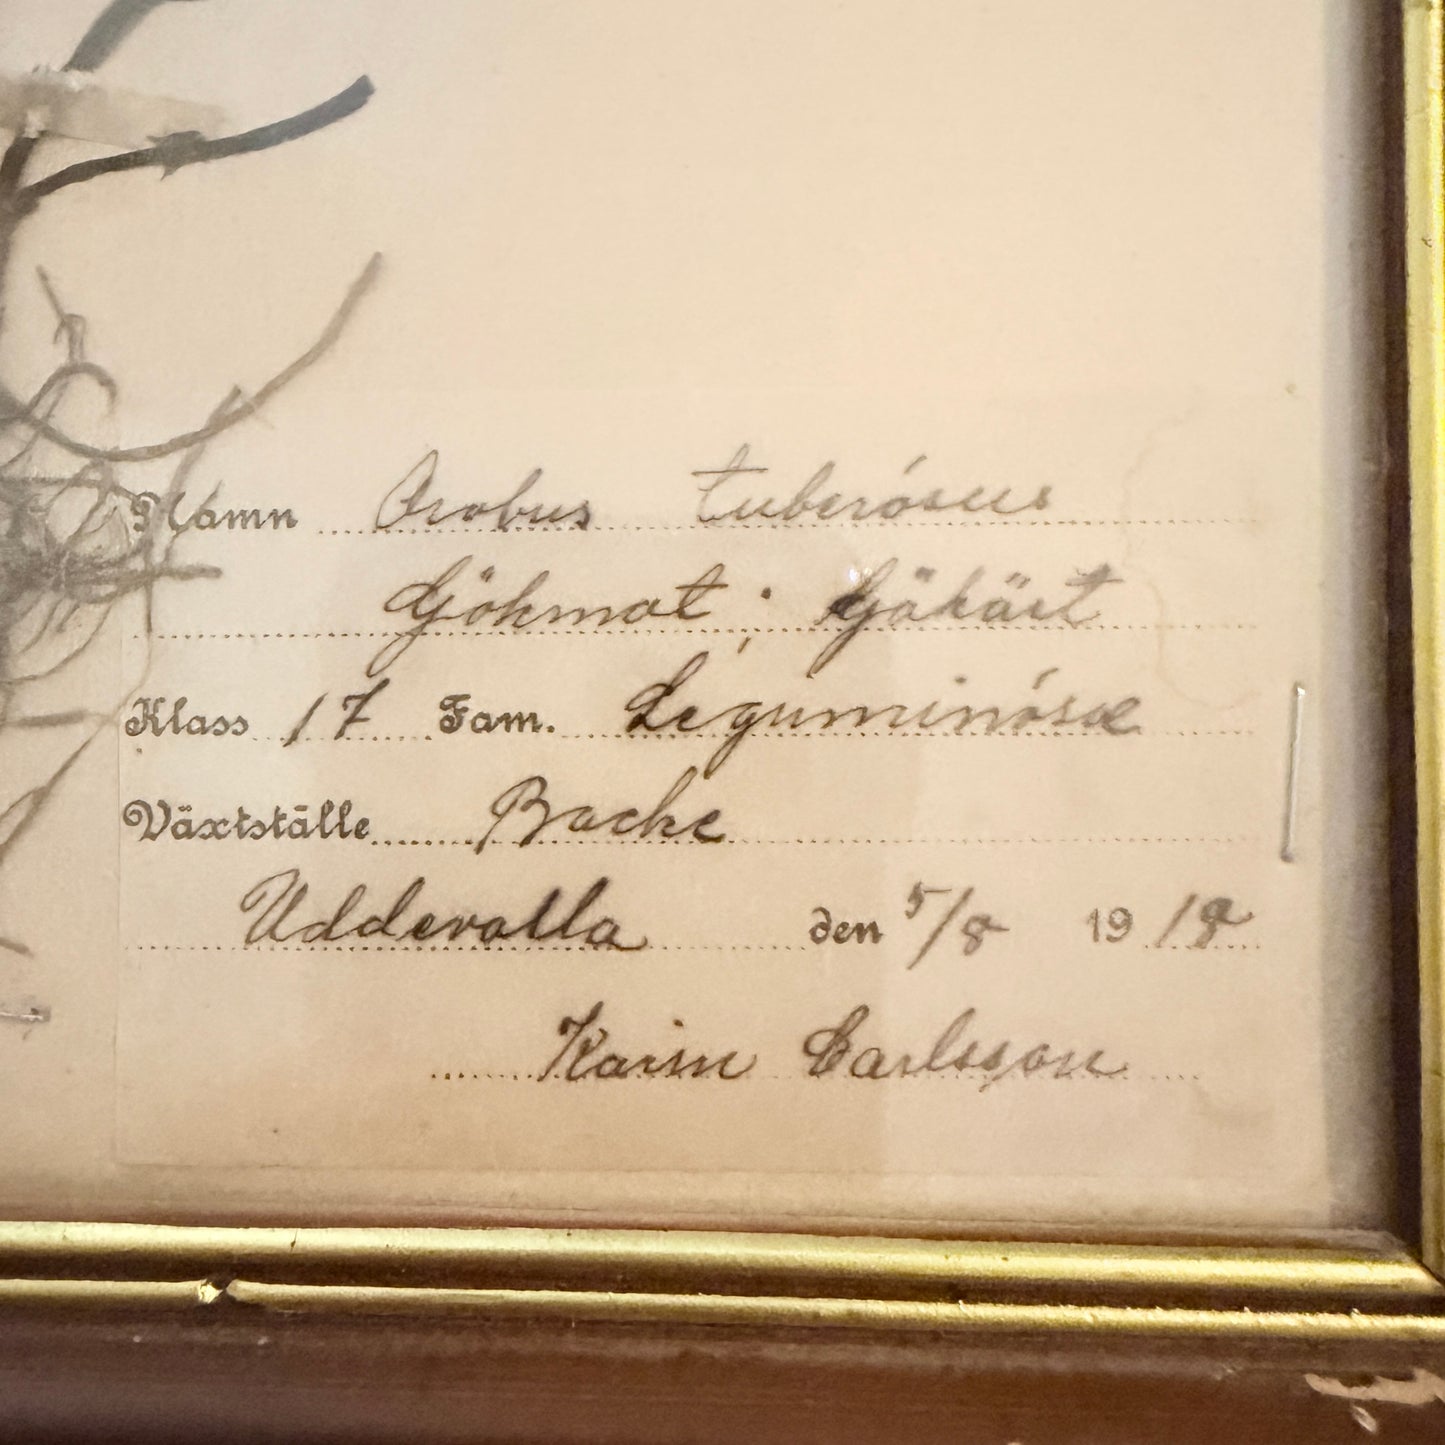 Namn Orobus tuberósus
Gjökmat; Gjökärt
Klass 17 Fam. Leguminósæ
Växtställe Backe
Uddevalla den 5/8 1918
Karin Carlsson